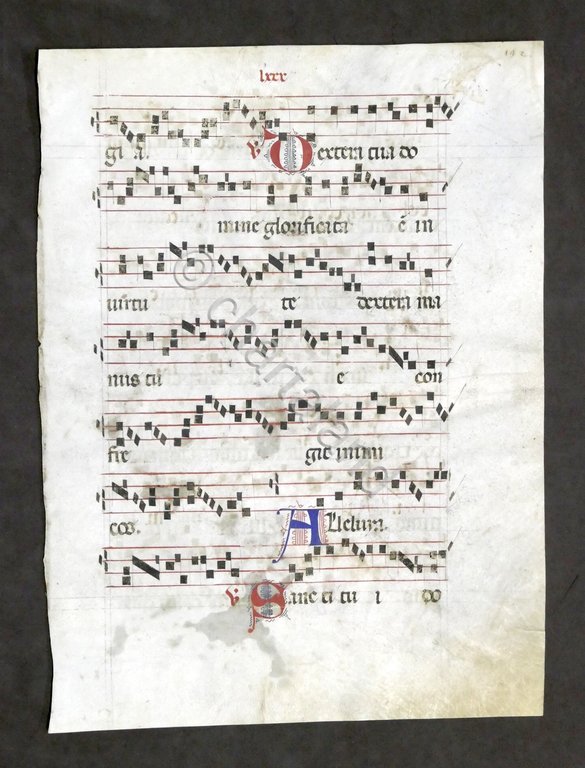 142
lxxx
gi a. ℣ Dextera tua do
mine glorificata ē in
uirtu te dextera ma
nus tu e con
fre git inimi
cos. Alleluia.
℣ Sancti tu i do
© chartaland